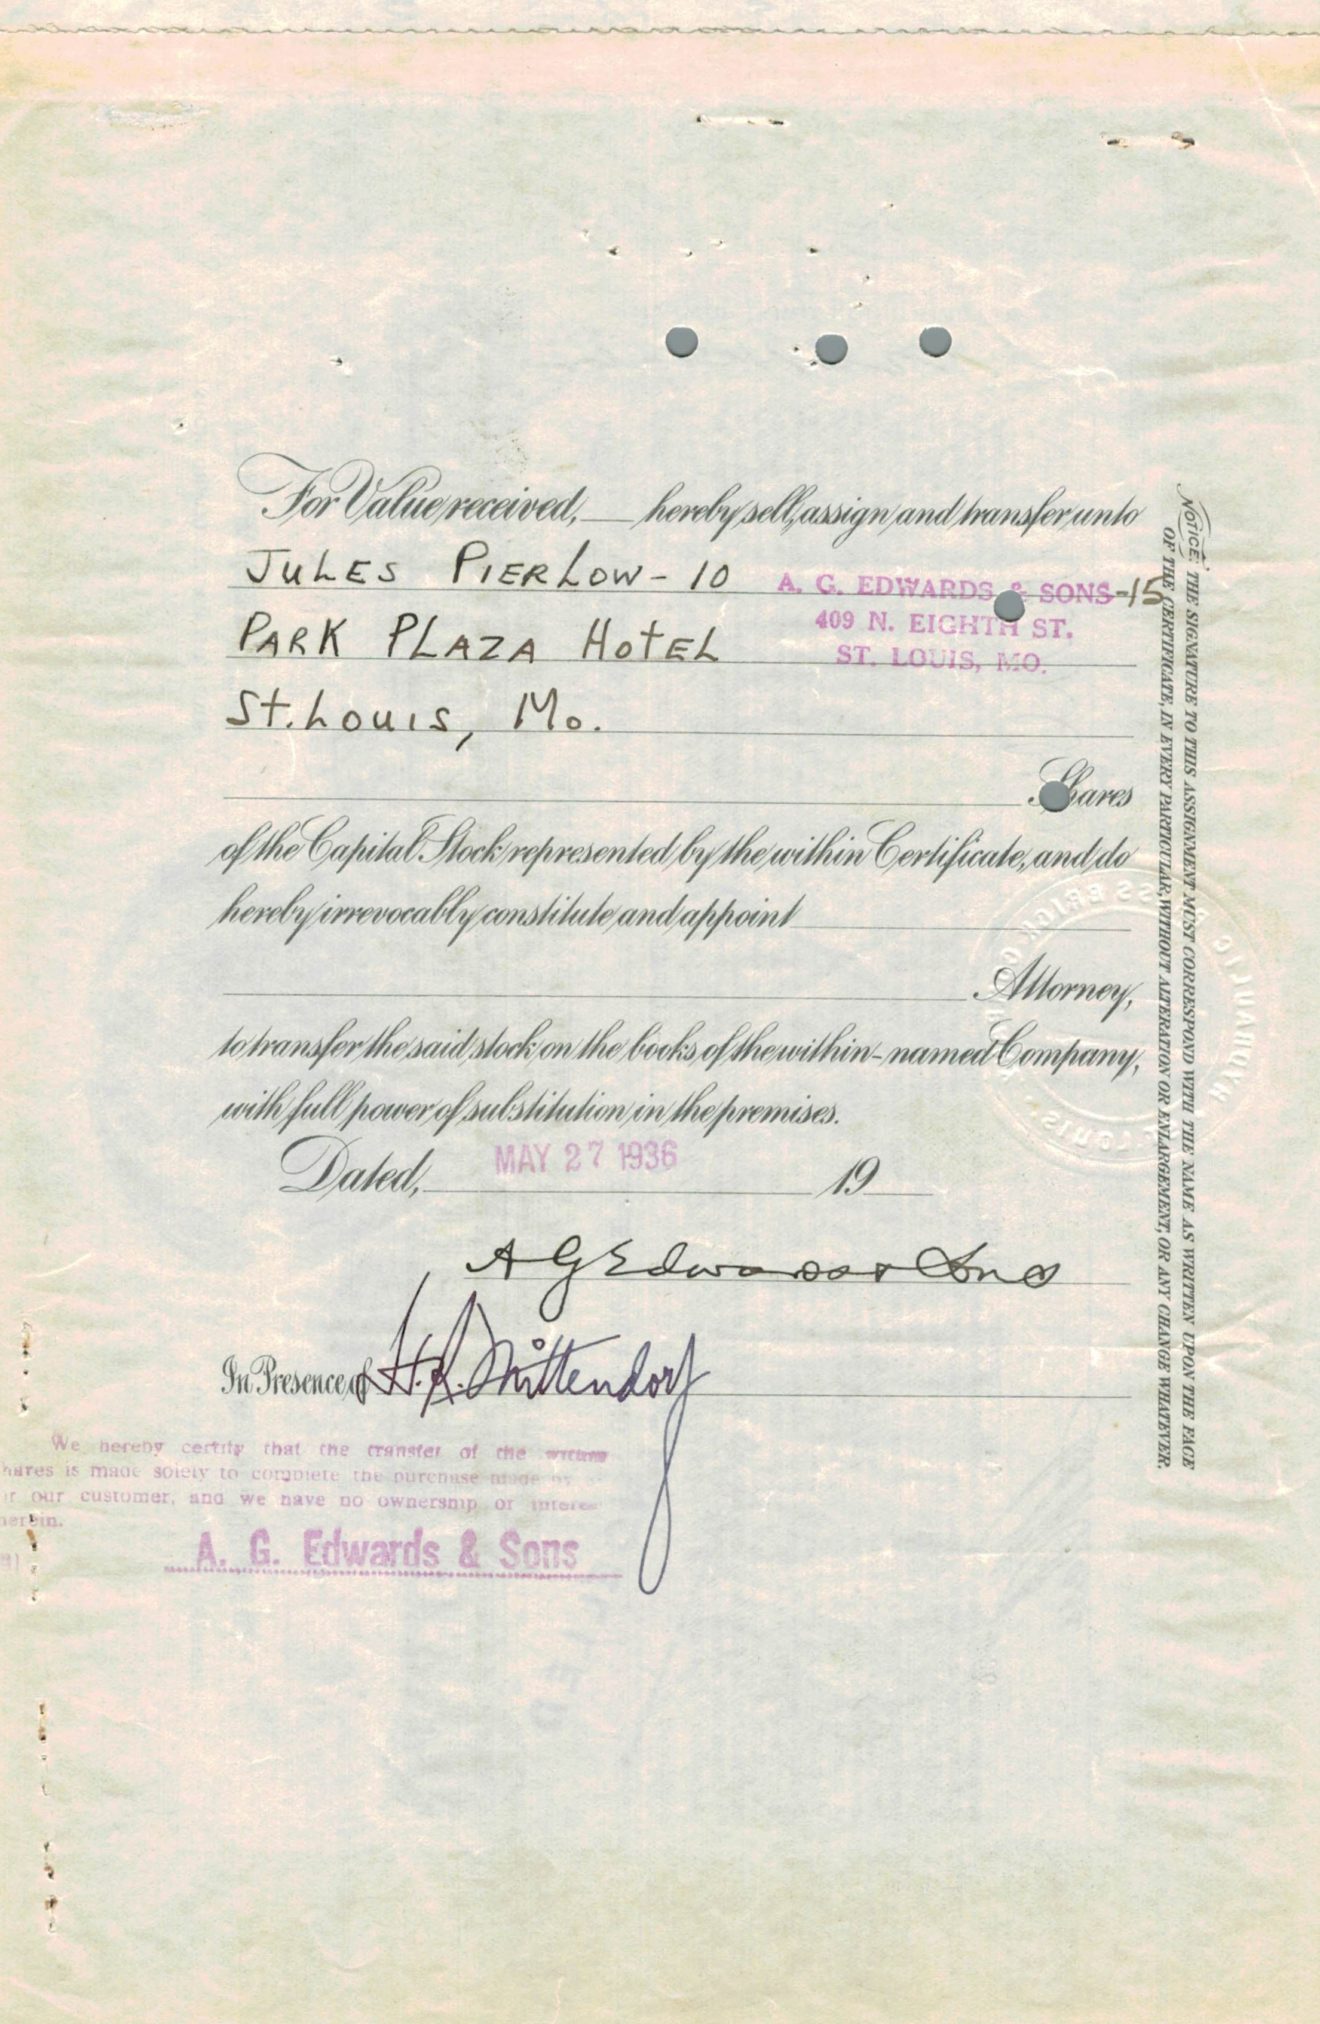 For Value received, hereby sell, assign and transfer unto
JULES PIERLOW - 10 A. G. EDWARDS & SONS -15
409 N. EIGHTH ST.
PARK PLAZA HOTEL
ST. LOUIS, MO.
St. Louis, Mo.
Shares
of the Capital Stock represented by the within Certificate, and do
hereby irrevocably constitute and appoint
Attorney,
to transfer the said stock on the books of the within-named Company,
with full power of substitution in the premises.
Dated, MAY 27 1936 19
A G Edwards & Sons
In Presence of H. R. Mittendorf
We hereby certify that the transfer of the within
hares is made solely to complete the purchase made by
r our customer, and we have no ownership or interes
herein.
A. G. Edwards & Sons
NOTICE: THE SIGNATURE TO THIS ASSIGNMENT MUST CORRESPOND WITH THE NAME AS WRITTEN UPON THE FACE
OF THE CERTIFICATE, IN EVERY PARTICULAR, WITHOUT ALTERATION OR ENLARGEMENT, OR ANY CHANGE WHATEVER.